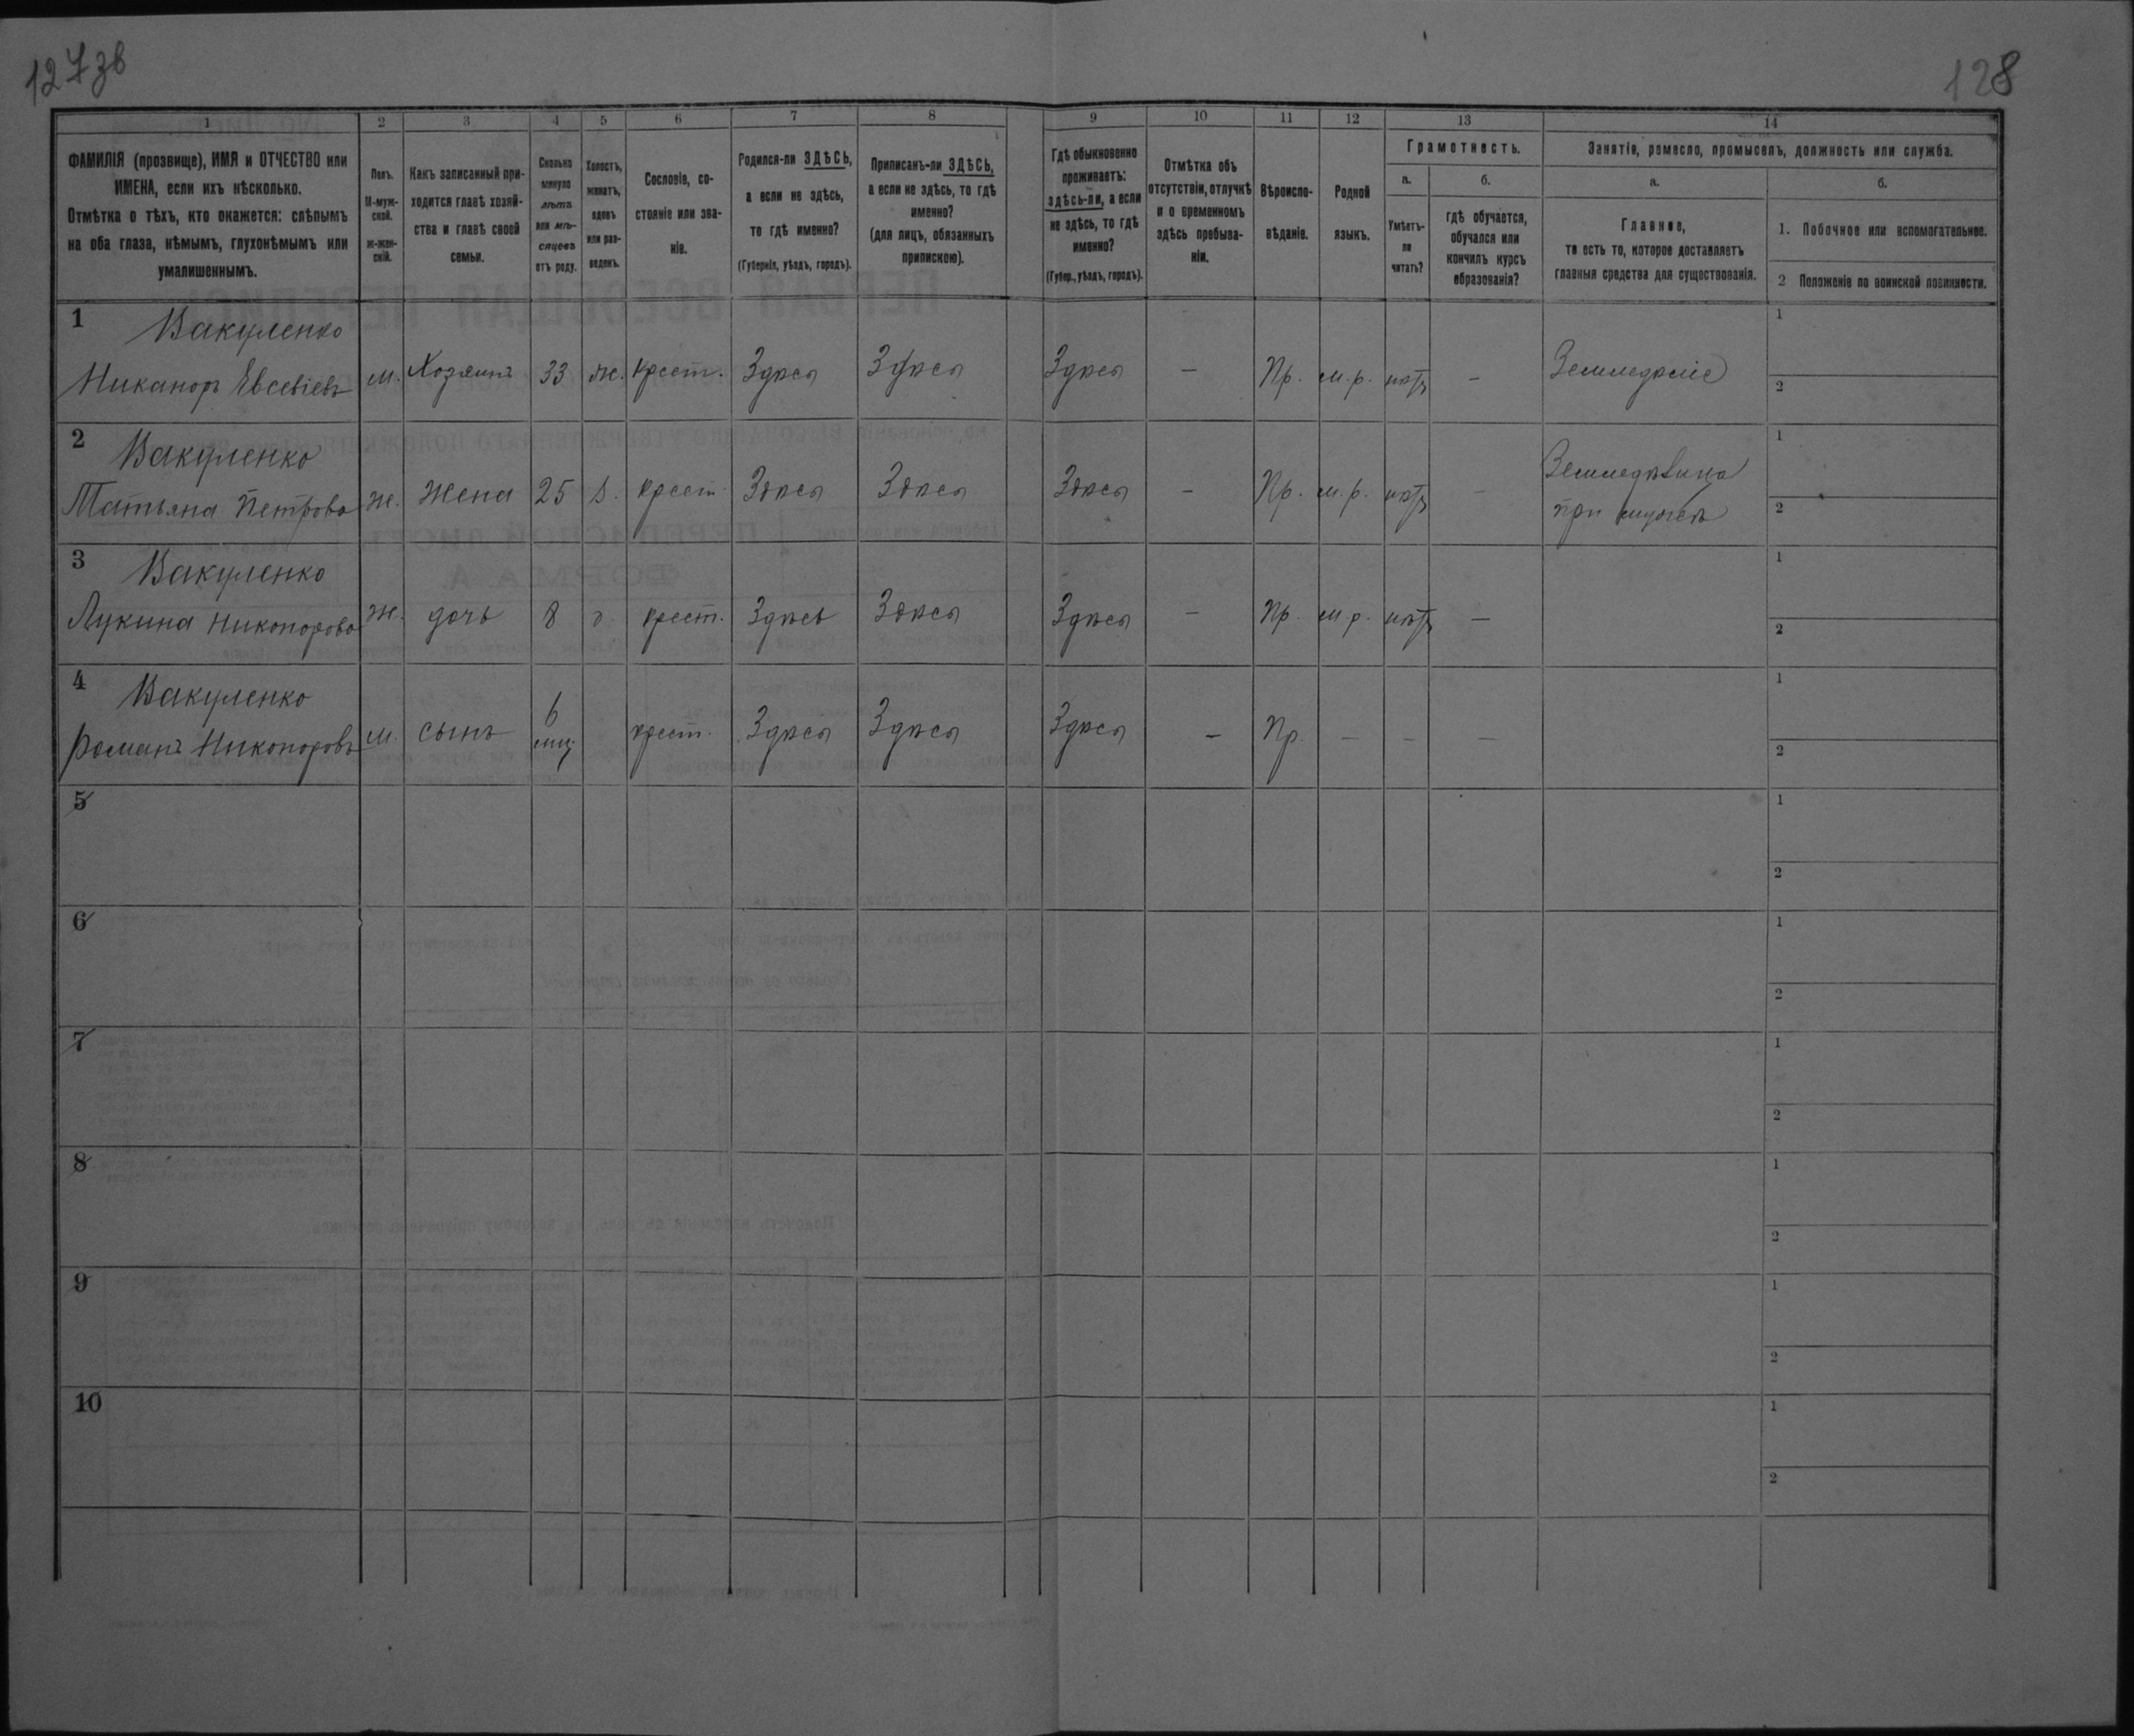 127зв
128
1 2 3 4 5 6 7 8 9 10 11 12 13 14
ФАМИЛІЯ (прозвище), ИМЯ и ОТЧЕСТВО или
ИМЕНА, если ихъ нѣсколько.
Отмѣтка о тѣхъ, кто окажется: слѣпымъ
на оба глаза, нѣмымъ, глухонѣмымъ или
умалишеннымъ.
Полъ.
М-муж-
ской.
ж-жен-
скій.
Какъ записанный при-
ходится главѣ хозяй-
ства и главѣ своей
семьи.
Сколько
минуло
лѣтъ
или мѣ-
сяцевъ
отъ роду.
Холостъ,
женатъ,
вдовъ
или раз-
веденъ.
Сословіе, со-
стояніе или зва-
ніе.
Родился-ли ЗДѢСЬ,
а если не здѣсь,
то гдѣ именно?
(Губернія, уѣздъ, городъ).
Приписанъ-ли ЗДѢСЬ,
а если не здѣсь, то гдѣ
именно?
(для лицъ, обязанныхъ
припискою).
Гдѣ обыкновенно
проживаетъ:
здѣсь-ли, а если
не здѣсь, то гдѣ
именно?
(Губер., уѣздъ, городъ).
Отмѣтка объ
отсутствіи, отлучкѣ
и о временномъ
здѣсь пребыва-
ніи.
Вѣроиспо-
вѣданіе.
Родной
языкъ.
Грамотность.
а.
Умѣетъ-
ли
читать?
б.
гдѣ обучается,
обучался или
кончилъ курсъ
образованія?
Занятіе, ремесло, промыселъ, должность или служба.
а.
Главное,
то есть то, которое доставляетъ
главныя средства для существованія.
б.
1. Побочное или вспомогательное.
2 Положеніе по воинской повинности.
1 Вакуленко
Никаноръ Евсевіевъ м. Хозяинъ 33 ж. крест. Здѣсь Здѣсь Здѣсь — Пр. м.р. нѣтъ — Земледѣліе
1
2
2 Вакуленко
Татьяна Петрова ж. жена 25 крест. Здѣсь Здѣсь Здѣсь — Пр. м.р. нѣтъ —
при
1
2
3 Вакуленко
Лукина Никонорова ж. дочь 8 крест. Здѣсь Здѣсь Здѣсь — Пр. м.р. нѣтъ —
1
2
4 Вакуленко
Романъ Никоноровъ м. сынъ 6 крест. Здѣсь Здѣсь Здѣсь — Пр. — — —
1
2
5
1
2
6
1
2
7
1
2
8
1
2
9
1
2
10
1
2